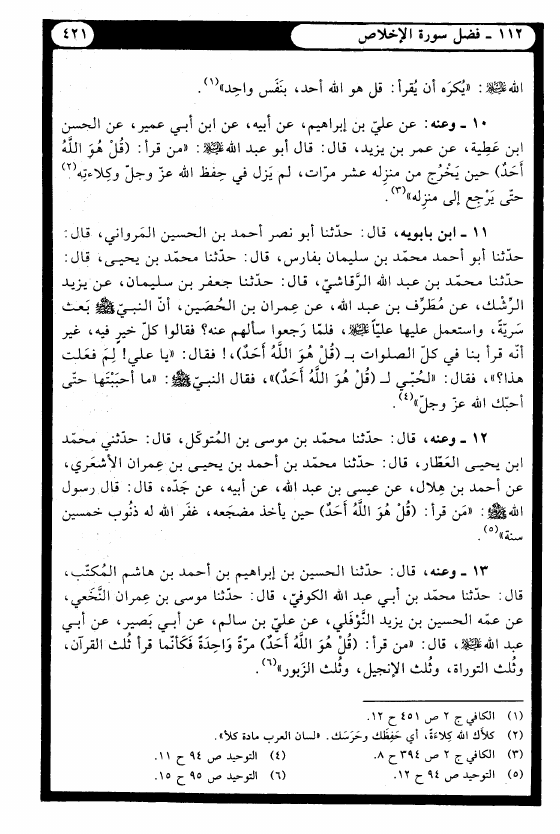 ١١٢ ـ فضل سورة الإخلاص
٤٢١
الله ﷺ: «يُكرَه أن يُقرأ: قل هو الله أحد، بنَفَس واحِد»(١).
١٠ ـ وعنه: عن عليّ بن إبراهيم، عن أبيه، عن ابن أبي عمير، عن الحسن
ابن عَطِية، عن عمر بن يزيد، قال: قال أبو عبد الله ﷺ: «من قرأ: (قُلْ هُوَ اللَّهُ
أَحَدٌ) حين يَخْرُج من منزله عشر مرّات، لم يَزل في حِفظ الله عزّ وجلّ وكِلاءتِه(٢)
حتّى يَرْجِع إلى منزله»(٣).
١١ ـ ابن بابويه، قال: حدّثنا أبو نصر أحمد بن الحسين المَرواني، قال:
حدّثنا أبو أحمد محمّد بن سليمان بفارس، قال: حدّثنا محمّد بن يحيى، قال:
حدّثنا محمّد بن عبد الله الرَّقاشيّ، قال: حدّثنا جعفر بن سليمان، عن يزيد
الرِّشْك، عن مُطَرِّف بن عبد الله، عن عِمران بن الحُصَين، أنّ النبيّ ﷺ بَعث
سَريّةً، واستعمل عليها عليّاً ﷺ، فلمّا رَجعوا سألهم عنه؟ فقالوا كلّ خيرٍ فيه، غير
أنّه قرأ بنا في كلّ الصلوات بـ (قُلْ هُوَ اللَّهُ أَحَدٌ)،! فقال: «يا علي! لِمَ فعَلت
هذا؟»، فقال: «لحُبّي لـ (قُلْ هُوَ اللَّهُ أَحَدٌ)»، فقال النبيّ ﷺ: «ما أحبَبْتَها حتّى
أحبّك الله عزّ وجلّ»(٤).
١٢ ـ وعنه، قال: حدّثنا محمّد بن موسى بن المُتوكّل، قال: حدّثني محمّد
ابن يحيى العَطّار، قال: حدّثنا محمّد بن أحمد بن يحيى بن عِمران الأشعَري،
عن أحمد بن هِلال، عن عيسى بن عبد الله، عن أبيه، عن جَدّه، قال: قال رسول
الله ﷺ: «مَن قرأ: (قُلْ هُوَ اللَّهُ أَحَدٌ) حين يأخذ مضجَعه، غفَر الله له ذنُوب خمسين
سنة»(٥).
١٣ ـ وعنه، قال: حدّثنا الحسين بن إبراهيم بن أحمد بن هاشم المُكتّب،
قال: حدّثنا محمّد بن أبي عبد الله الكوفيّ، قال: حدّثنا موسى بن عِمران النَّخَعي،
عن عمّه الحسين بن يزيد النَّوْفَلي، عن عليّ بن سالم، عن أبي بَصير، عن أبي
عبد الله ﷺ، قال: «من قرأ: (قُلْ هُوَ اللَّهُ أَحَدٌ) مرّةً وَاحِدَةً فَكَأنّما قرأ ثُلث القرآن،
وثُلث التوراة، وثُلث الإنجيل، وثُلث الزَبور»(٦).
(١) الكافي ج ٢ ص ٤٥١ ح ١٢.
(٢) كلأك الله كِلاءَةً، أي حَفِظَك وحَرَسَك. «لسان العرب مادة كلأ».
(٣) الكافي ج ٢ ص ٣٩٤ ح ٨. (٤) التوحيد ص ٩٤ ح ١١.
(٥) التوحيد ص ٩٤ ح ١٢. (٦) التوحيد ص ٩٥ ح ١٥.